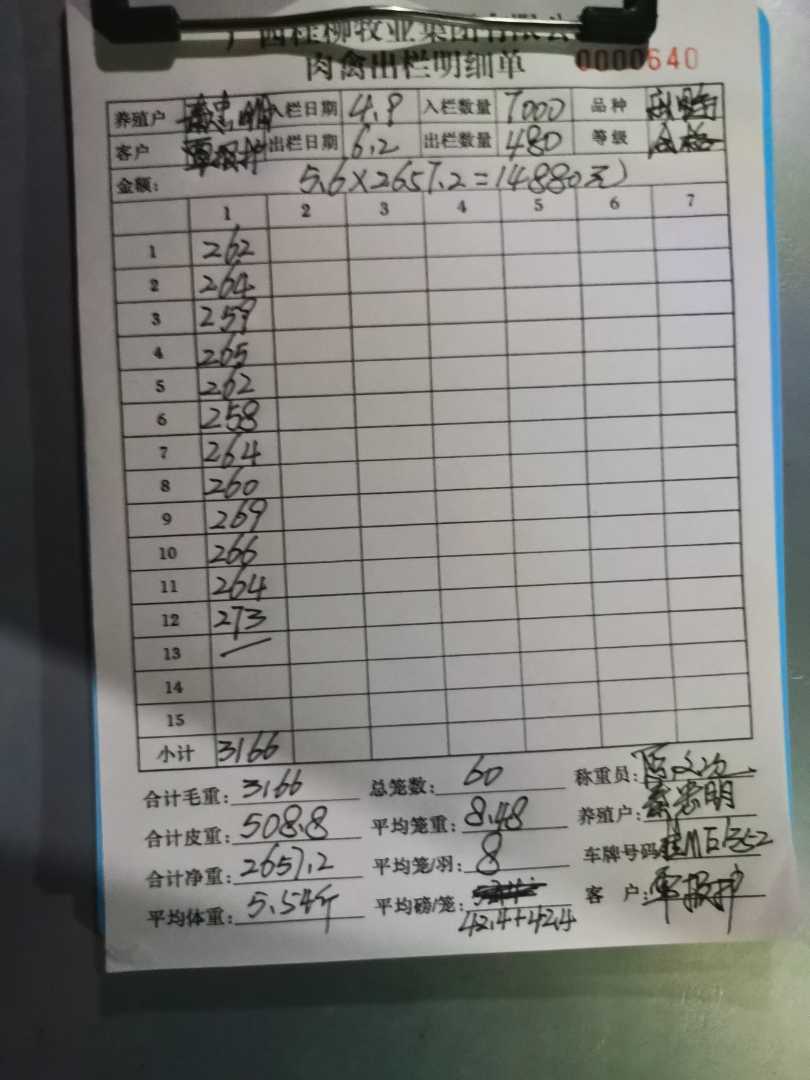 广西桂柳牧业集团有限公
肉禽出栏明细单 0000640
养殖户 入栏日期 4.9 入栏数量 7000 品种
客户 覃报护 出栏日期 6.2 出栏数量 480 等级 合格
金额: 5.6×2657.2=14880元
1 2 3 4 5 6 7
1 262
2 264
3 259
4 265
5 262
6 258
7 264
8 260
9 269
10 266
11 264
12 273
13
14
15
小计 3166
合计毛重: 3166 总笼数: 60 称重员:
合计皮重: 508.8 平均笼重: 8.48 养殖户:
合计净重: 2657.2 平均笼/羽: 8 车牌号码
平均体重: 5.54斤 平均磅/笼: 42.4+42.4 客户: 覃报护